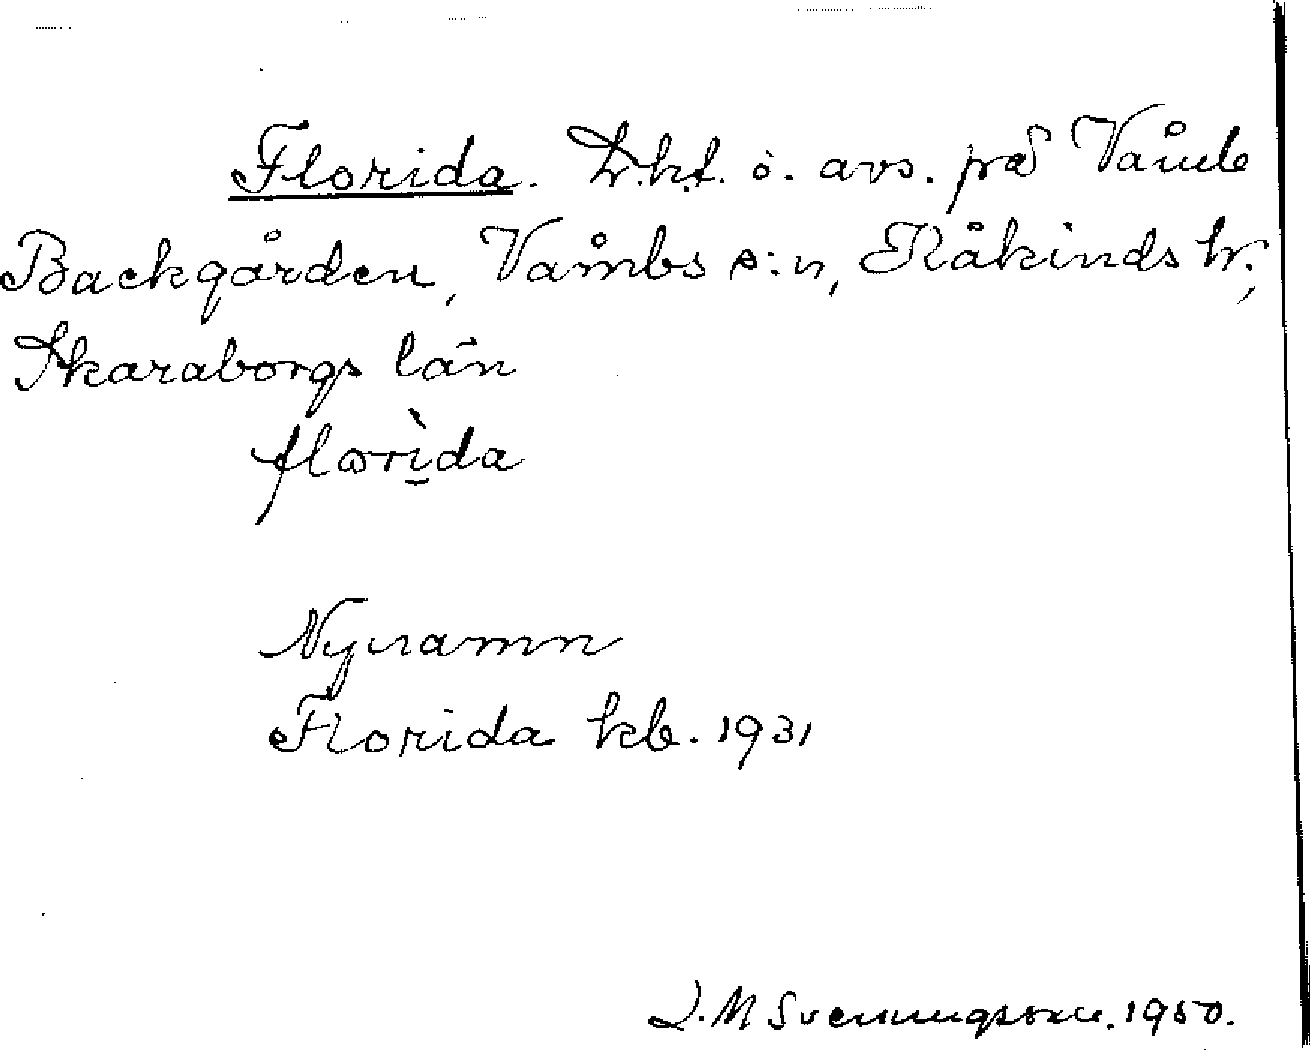 Florida. Lht. o. avs. på Våmb
Backgården, Våmbs s:n, Kåkinds hr.,
Skaraborgs län
florìda
Nynamn
Florida kb. 1931
J. M Svenningsson. 1950.